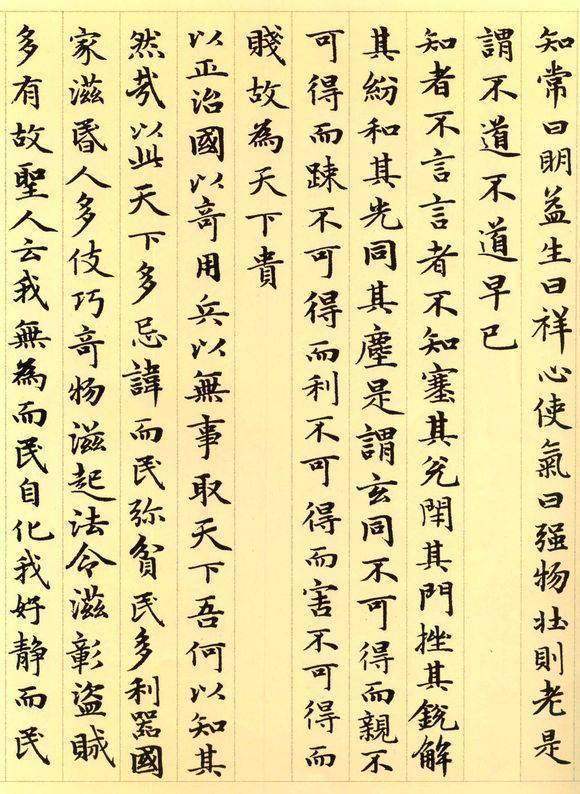 知常曰明益生曰祥心使氣曰强物壮則老是
謂不道不道早已
知者不言言者不知塞其兑閉其門挫其銳解
其紛和其光同其塵是謂玄同不可得而親不
可得而踈不可得而利不可得而害不可得而
賤故為天下貴
以正治國以竒用兵以無事取天下吾何以知其
然㢤以此天下多忌諱而民弥貧民多利器國
家滋昬人多伎巧竒物滋起法令滋彰盗賊
多有故聖人云我無為而民自化我好静而民